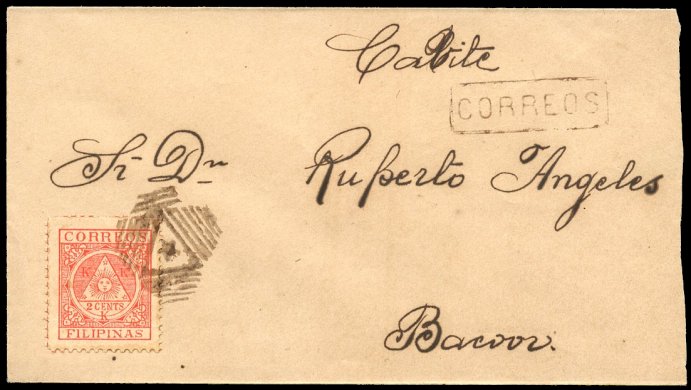 Cabite
CORREOS
Sr. Dn Ruperto Angeles
CORREOS
K K
2 CENTS
K
FILIPINAS
Bacoor.